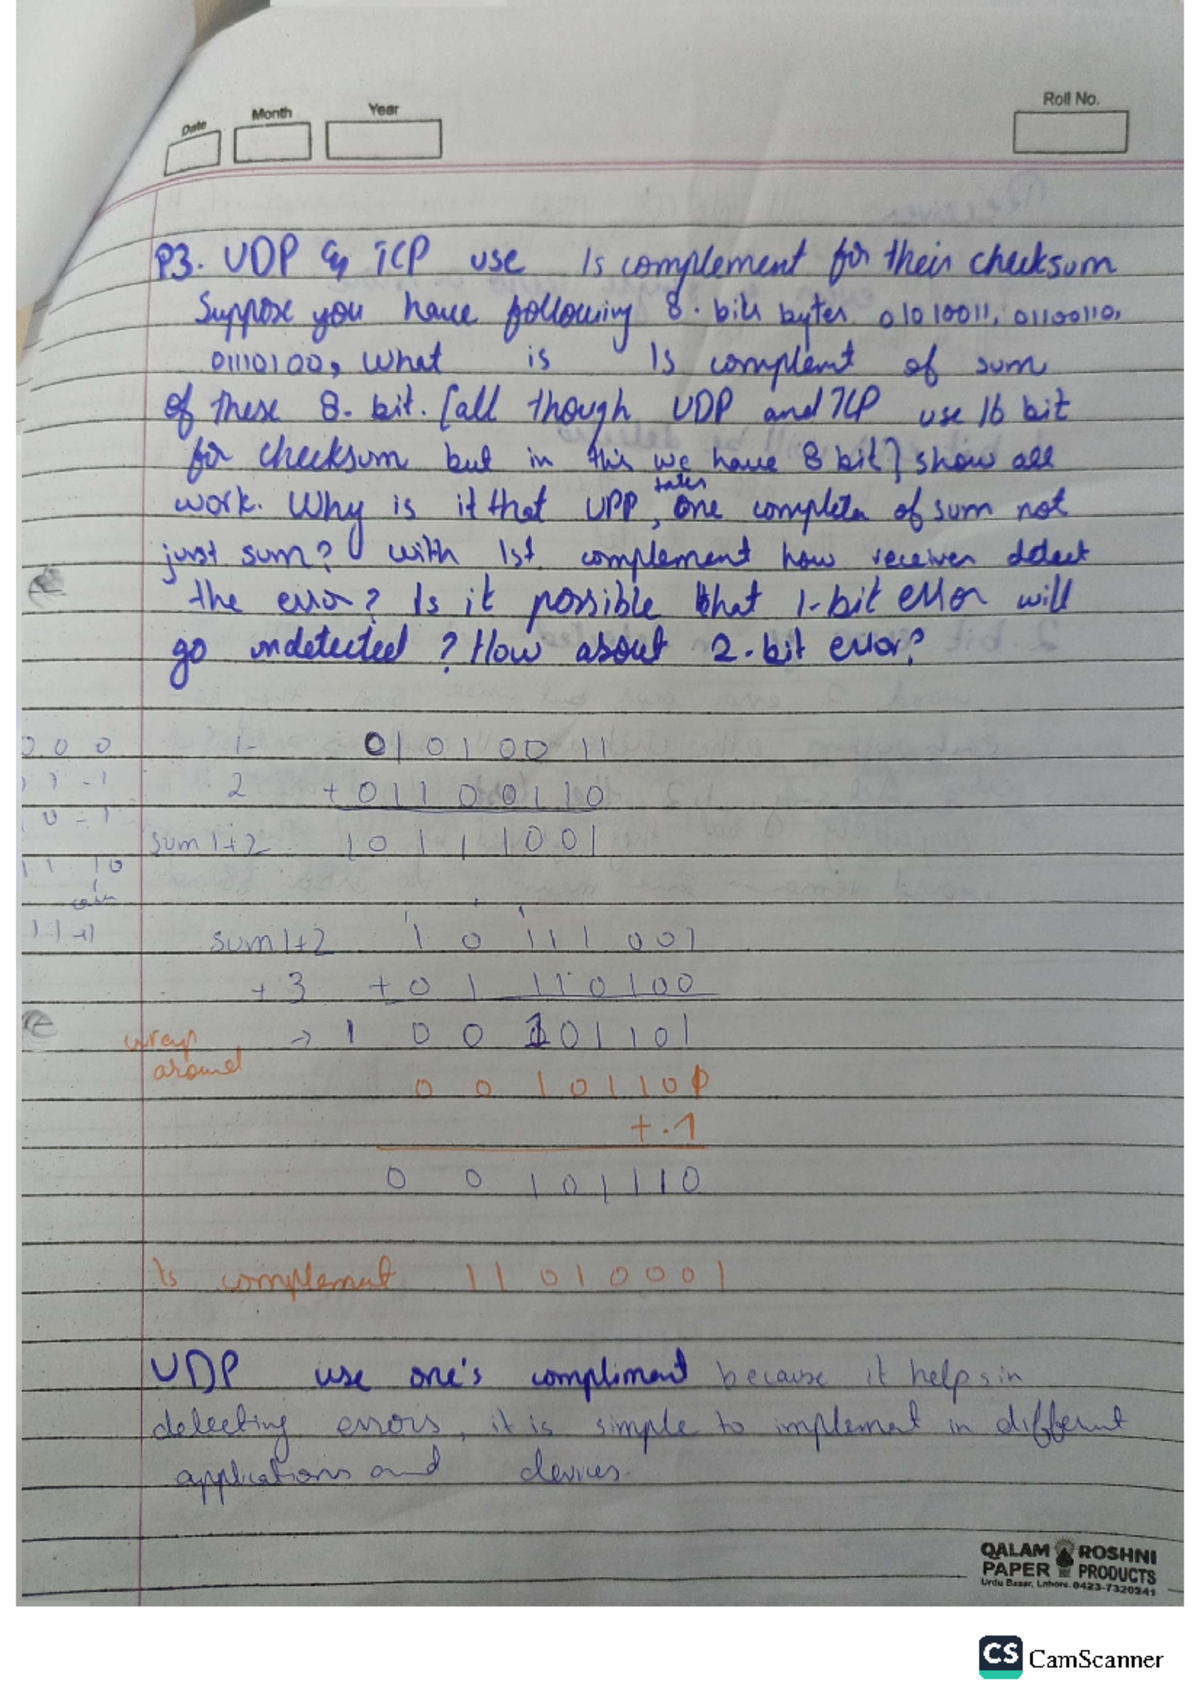 Date Month Year Roll No.
P3. UDP & TCP use 1s complement for their checksum
Suppose you have following 8-bits bytes 01010011, 01100110,
01110100, What is 1s complemt of sum
of these 8-bit. [all though UDP and TCP use 16 bit
for checksum but in this we have 8 bit] show all
takes
work. Why is it that UPP, one completa of sum not
just sum? with 1st complement how receiver detect
the error? Is it possible that 1-bit error will
go undetected? How about 2-bit error?
0 0 0 1- 01010011
2 +01100110
0 - 1
sum 1+2 10111001
11 10
sum 1+2 10111001
+ 3 +01110100
wrap → 1 00101101
around
00101101
+ 1
00101110
1s complement 11010001
UDP use one's compliment because it helps in
detecting errors, it is simple to implement in different
applications and devices.
QALAM ROSHNI
PAPER PRODUCTS
Urdu Bazar, Lahore. 0423-7320241
CS CamScanner